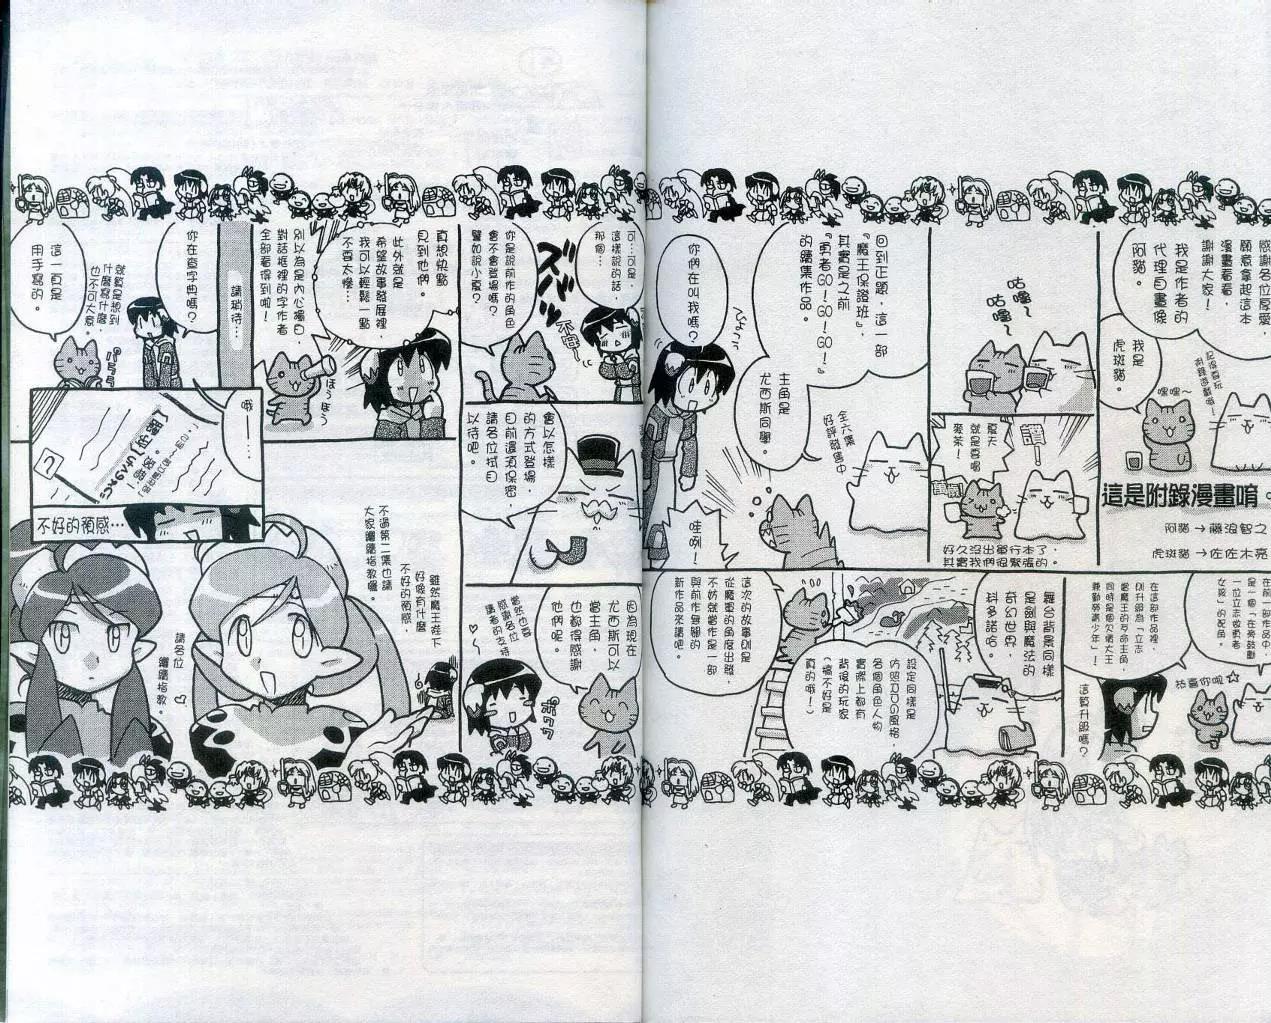 感謝各位厚愛，
願意拿起這本
漫畫看看，
謝謝大家！
我是作者的
代理自畫像
阿貓。
我是
虎斑貓。
嘿嘿〜
這是附錄漫畫唷。
阿貓→藤浪智之
虎斑貓→佐佐木亮
咕嚕〜
咕嚕〜
讚
夏天
就是要喝
麥茶！
好久沒出單行本了，
其實我們很緊張的。
回到正題，這一部
『魔王保證班』，
其實是之前
『勇者GO！GO！GO！』
的續集作品。
主角是
尤西斯同學。
全六集
好評發售中
你們在叫我嗎？
哇咧！
在前一部作品中
是一個「在旁鼓勵
一位立志做勇者
女孩」的配角，
在這部作品裡，
則升級為「立志
當魔王的苦命主角，
同時也是個欠債大王
兼勤勞青少年」！
恭喜你呢☆
這算升級嗎？
舞台背景同樣
是劍與魔法的
奇幻世界，
科多諾哈。
設定同樣是
仿照RPG風格，
各個角色人物
實際上都有
背後的玩家
（搞不好是
真的哦！）
這次的故事則是
從魔軍的角度出發，
不妨就當作是一部
與前作無關的
新作品來讀吧。
可…可是，
這樣說的話，
那個…
不安〜
你是說前作的角色
會不會登場嗎？
譬如說小夏？
會以怎樣
的方式登場，
目前還須保密，
請各位拭目
以待吧。
因為現在
尤西斯可以
當主角，
也都得感謝
他們呢。
當然也要
感謝各位
讀者的支持
真想快點
見到他們。
此外就是
希望故事發展裡
我可以輕鬆一點
不要太慘…
別以為是內心獨白，
對話框裡的字作者
全部看得到啦！
ほうほう
請稍待…
你在查字典嗎？
就算是想到
什麼寫什麼，
也不可大意。
這一頁是
用手寫的。
哦——
不好的預感…
雖然魔王殿下
好像有什麼
不好的預感，
不過第二集也請
大家繼續指教囉。
請各位
繼續指教。♡